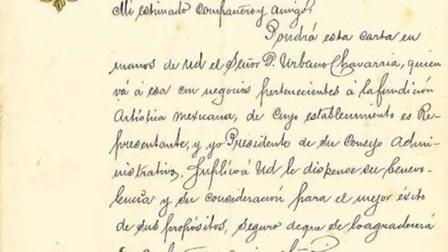 Mi estimado compañero y amigo:
Pondrá esta carta en
manos de Ud el Señor D. Urbano Chavarria, quien
vá á esa con negocios pertenecientes á la fundición
Artística mexicana, de cuyo establecimiento es Re-
presentante, y yo Presidente de su Consejo Admi-
nistrativo. Suplico á Ud le dispense su benevo-
lencia y su consideración para el mejor éxito
de sus propósitos, seguro de que se lo agradecerá